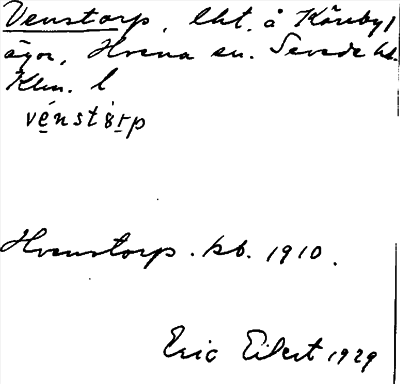 Venstorp, lht. å Kårebyl
ägor, Hvena sn. Sevede hd.
Klm. l
vénstårp
Hvenstorp. kb. 1910.
Eric Eilert 1929